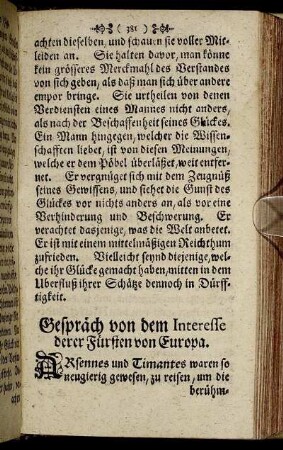 ( 381 )
achten dieselben, und schauen sie voller Mit-
leiden an. Sie halten davor, man könne
kein grösseres Merckmahl des Verstandes
von sich geben, als daß man sich über andere
empor bringe. Sie urtheilen von denen
Verdiensten eines Mannes nicht anders,
als nach der Beschaffenheit seines Glückes.
Ein Mann hingegen, welcher die Wissen-
schafften liebet, ist von diesen Meinungen,
welche er dem Pöbel überläßet, weit entfer-
net. Er vergnüget sich mit dem Zeugnüß
seines Gewissens, und siehet die Gunst des
Glückes vor nichts anders an, als vor eine
Verhinderung und Beschwerung. Er
verachtet dasjenige, was die Welt anbetet.
Er ist mit einem mittelmäßigen Reichthum
zufrieden. Vielleicht seynd diejenige, wel-
che ihr Glücke gemacht haben, mitten in dem
Uberfluß ihrer Schätze dennoch in Dürff-
tigkeit.
Gespräch von dem Interesse
derer Fürsten von Europa.
ARsennes und Timantes waren so
neugierig gewesen, zu reisen, um die
berühm-